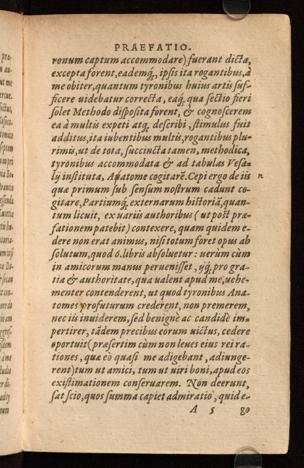 PRAEFATIO.
ronum captum accommodare) fuerant dicta,
excepta forent, eademq́, ipsis ita rogantibus, à
me obiter, quantum tyronibus huius artis suf-
ficere uidebatur correcta, eaq́, qua sectio fieri
solet Methodo disposita forent, & cognoscerem
ea à multis expeti atq́, describi, stimulus fuit
additus, ita iubentibus multis, rogantibus plu-
rimis, ut de tota, succincta tamen, methodica,
tyronibus accommodata & ad tabulas Vesa-
lij instituta, Anatome cogitarē. Cepi ergo de iis
quæ primum sub sensum nostrum cadunt co-
gitare, Partiumq́, externarum historiā, quan-
tum licuit, ex uariis authoribus (ut post præ-
fationem patebit) contexere, quam quidem e-
dere non erat animus, nisi totum foret opus ab
solutum, quod ὁλικῶς absoluetur: uerùm cùm
in amicorum manus peruenisset, ijq́, pro gra-
tia & authoritate, qua ualent apud me, uehe-
menter contenderent, ut quod tyronibus Ana-
tomes profuturum crederent, non premerem,
nec iis inuiderem, sed benignè ac candidè im-
pertirer, tādem precibus eorum uictus, cedere
oportuit (præsertim cùm non leues eius rei ra-
tiones, qua eò quasi me adigebant, adiunge-
rent) tum ut amici, tum ut uiri boni, apud eos
existimationem conseruarem. Non deerunt,
sat scio, quos summa capiet admiratio, quid e-
A 5 go